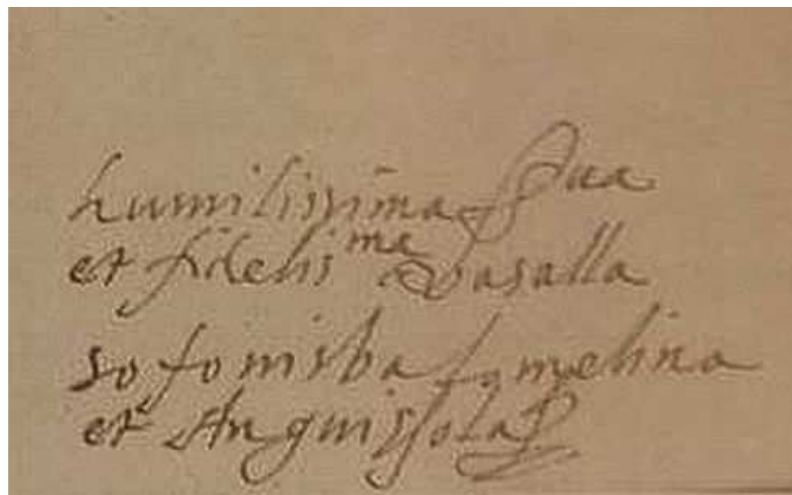 humilissima Sua
et fidelis^ma vasalla
sofonisba lomelina
et Anguissola